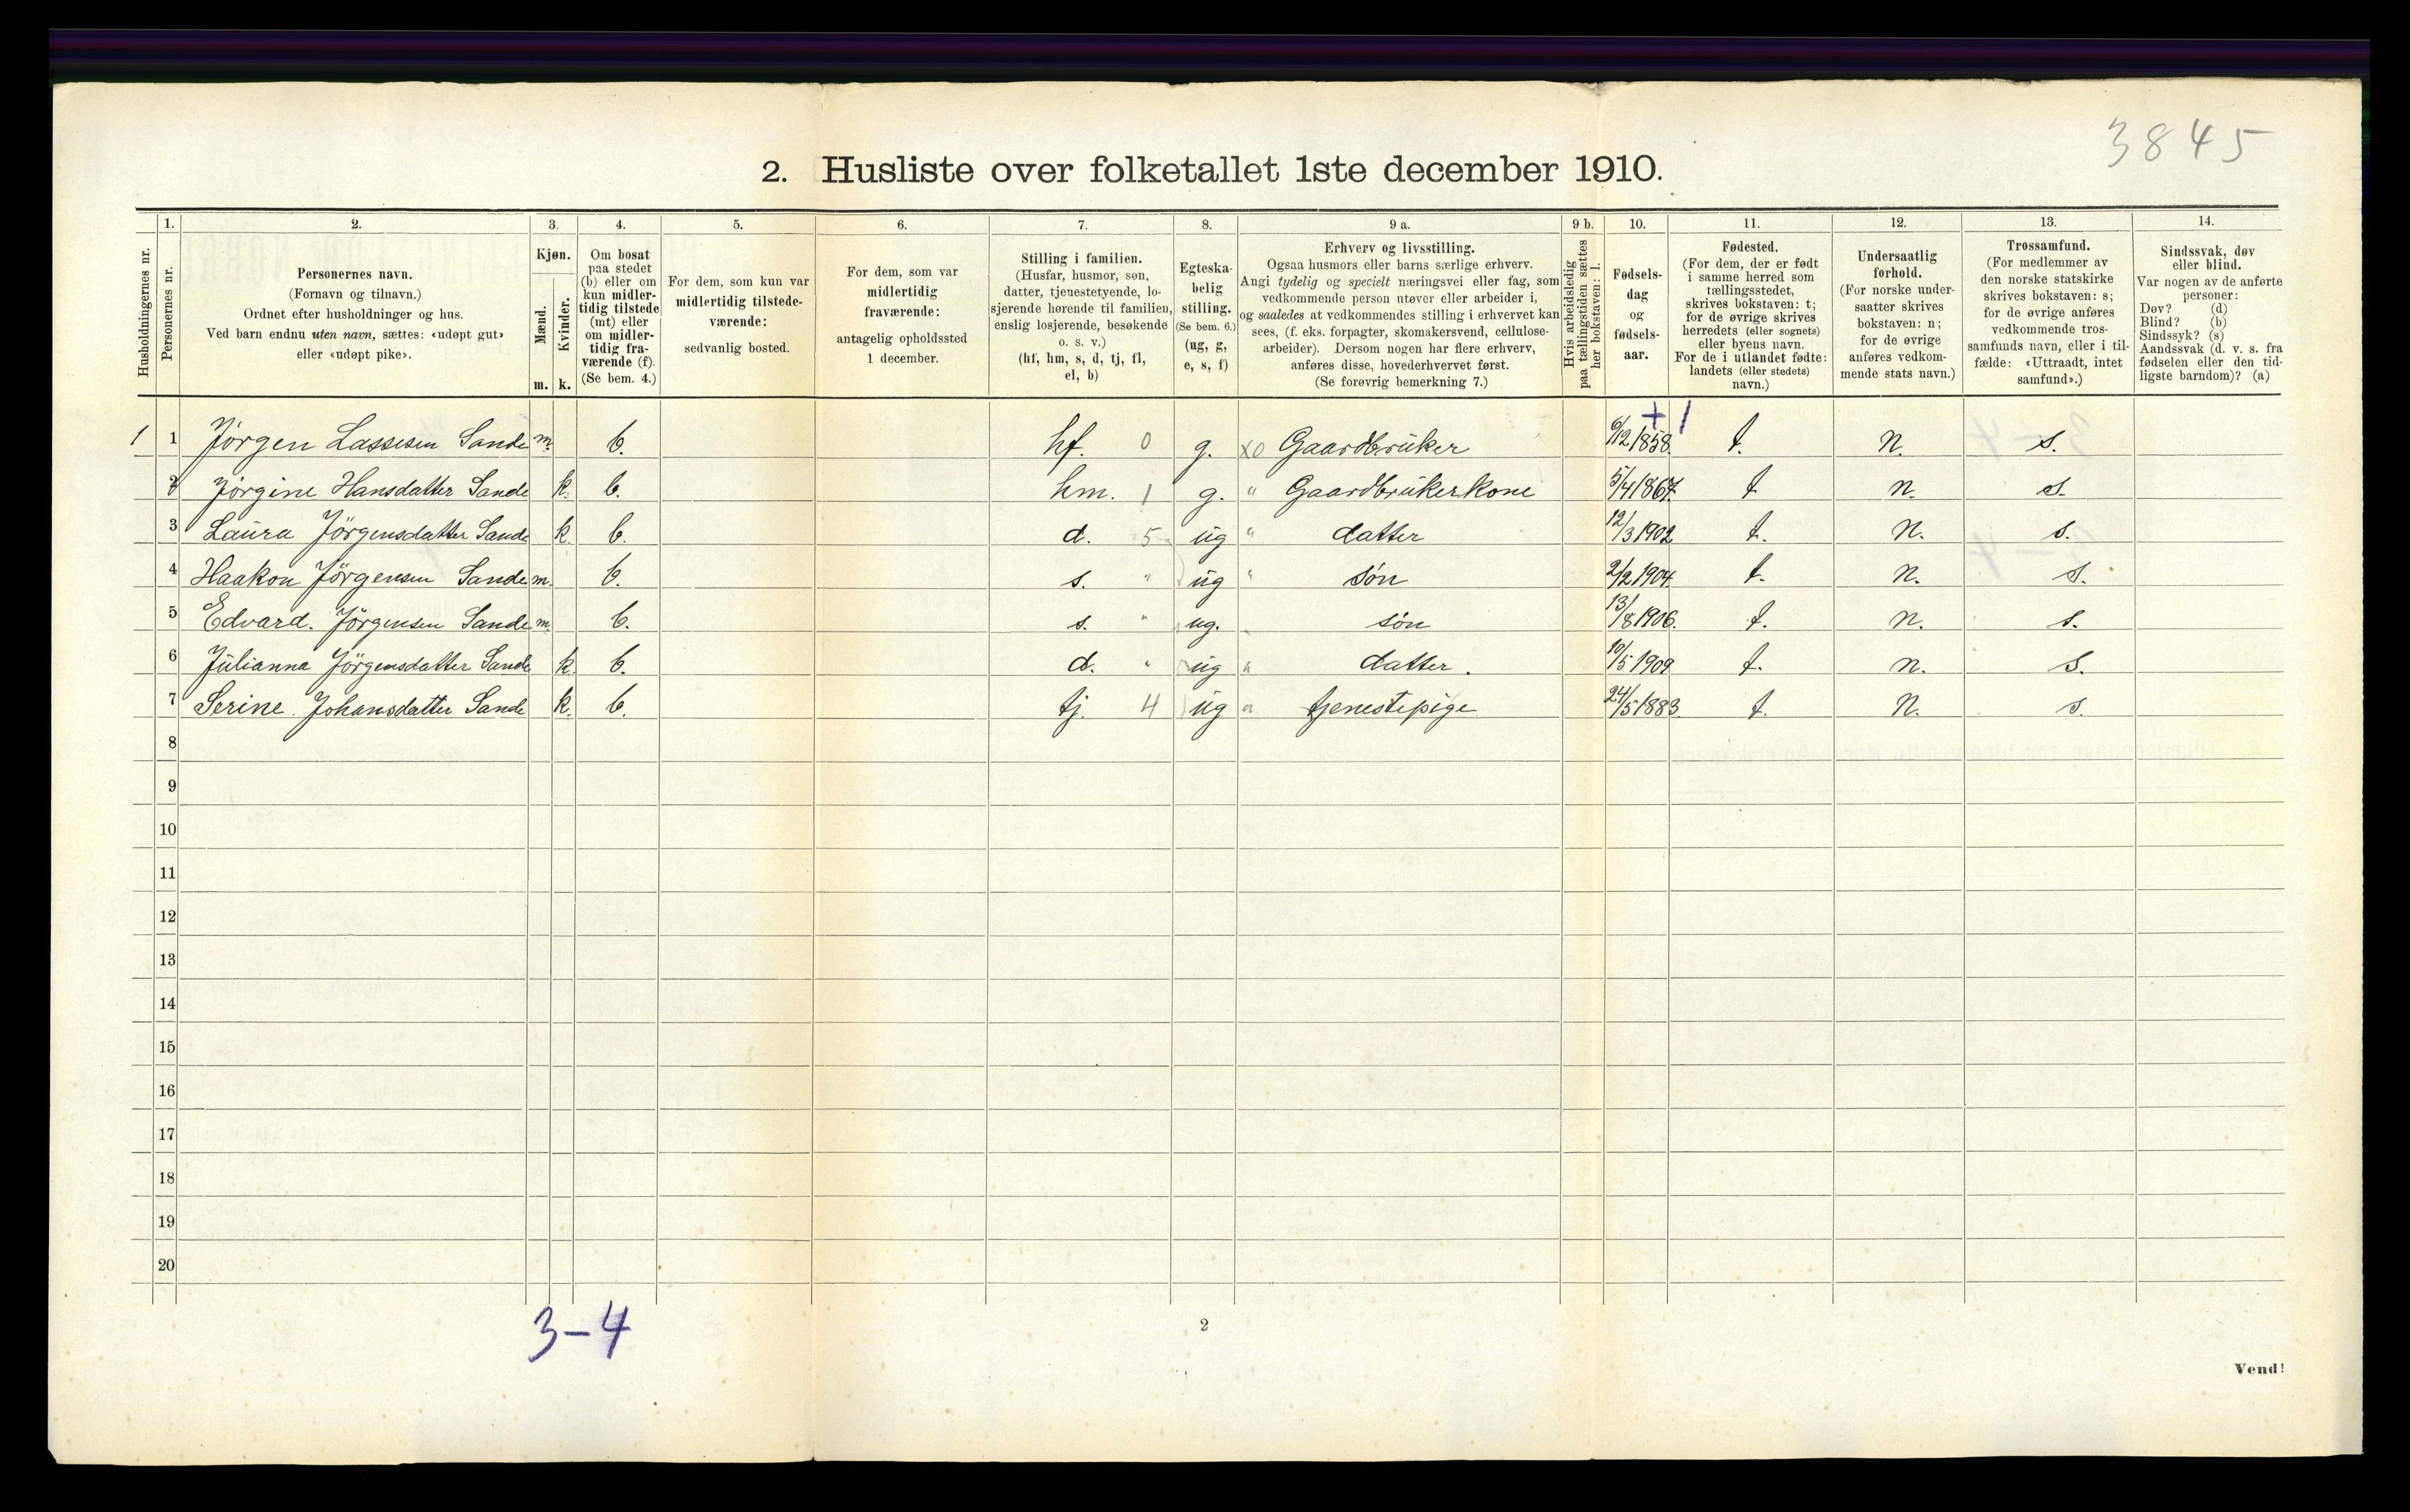 3845
2. Husliste over folketallet 1ste december 1910.
Husholdningernes nr.
1.
Personernes nr.
2.
Personernes navn.
(Fornavn og tilnavn.)
Ordnet efter husholdninger og hus.
Ved barn endnu uten navn, sættes: «udøpt gut»
eller «udøpt pike».
3.
Kjøn.
Mænd.
Kvinder.
m. k.
4.
Om bosat
paa stedet
(b) eller om
kun midler-
tidig tilstede
(mt) eller
om midler-
tidig fra-
værende (f).
(Se bem. 4.)
5.
For dem, som kun var
midlertidig tilstede-
værende:
sedvanlig bosted.
6.
For dem, som var
midlertidig
fraværende:
antagelig opholdssted
1 december.
7.
Stilling i familien.
(Husfar, husmor, søn,
datter, tjenestetyende, lo-
sjerende hørende til familien,
enslig losjerende, besøkende
o. s. v.)
(hf, hm, s, d, tj, fl,
el, b)
8.
Egteska-
belig
stilling.
(Se bem. 6.)
(ug, g,
e, s, f)
9 a.
Erhverv og livsstilling.
Ogsaa husmors eller barns særlige erhverv.
Angi tydelig og specielt næringsvei eller fag, som
vedkommende person utøver eller arbeider i,
og saaledes at vedkommendes stilling i erhvervet kan
sees, (f. eks. forpagter, skomakersvend, cellulose-
arbeider). Dersom nogen har flere erhverv,
anføres disse, hovederhvervet først.
(Se forøvrig bemerkning 7.)
9 b.
Hvis arbeidsledig
paa tællingstiden sættes
her bokstaven: l.
10.
Fødsels-
dag
og
fødsels-
aar.
11.
Fødested.
(For dem, der er født
i samme herred som
tællingsstedet,
skrives bokstaven: t;
for de øvrige skrives
herredets (eller sognets)
eller byens navn.
For de i utlandet fødte:
landets (eller stedets)
navn.)
12.
Undersaatlig
forhold.
(For norske under-
saatter skrives
bokstaven: n;
for de øvrige
anføres vedkom-
mende stats navn.)
13.
Trossamfund.
(For medlemmer av
den norske statskirke
skrives bokstaven: s;
for de øvrige anføres
vedkommende tros-
samfunds navn, eller i til-
fælde: «Uttraadt, intet
samfund».)
14.
Sindssvak, døv
eller blind.
Var nogen av de anførte
personer:
Døv? (d)
Blind? (b)
Sindssyk? (s)
Aandssvak (d. v. s. fra
fødselen eller den tid-
ligste barndom)? (a)
+ 1
1 1 Jørgen Lassesen Sande m. b. hf. 0 g. xo Gaardbrüker 6/12 1858. t. n. s.
2 Jørgine Hansdatter Sande k. b. hm. 1 g. " Gaardbrükerkone 5/4 1867. t n. s.
3 Laüra Jörgensdatter Sande k. b. d. 5 üg " datter 12/3 1902 t. n. s.
4 Haakon Jörgensen Sande m. b. s. " üg " søn 2/2 1904. t. n. s.
5 Edvard. Jörgensen Sande m. b. s. " ug. " søn 13/8 1906. t. n. s.
6 Jülianna Jörgensdatter Sande k. b. d. " üg " datter. 10/5 1909 t. n. s.
7 Serine Johansdatter Sande k. b. tj. 4 üg " tjenestepige 24/5 1883. t. n. s.
8
9
10
11
12
13
14
15
16
17
18
19
20
3-4
2
Vend!